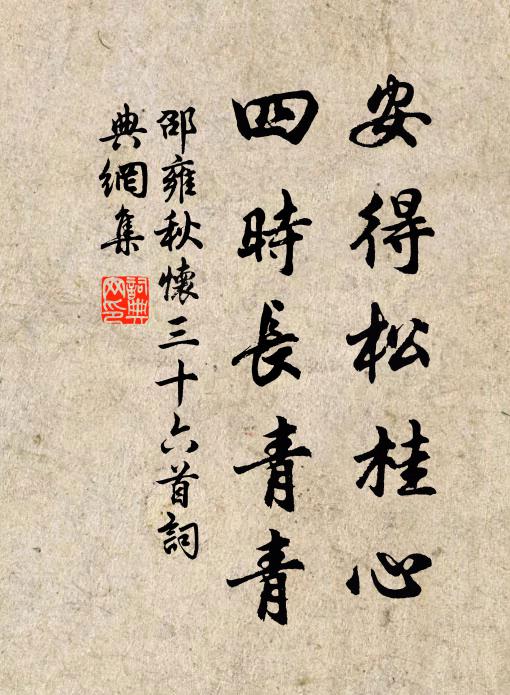 安得松桂心
四時長青青
邵雍秋懷三十六首詞
典網集
詞典網印